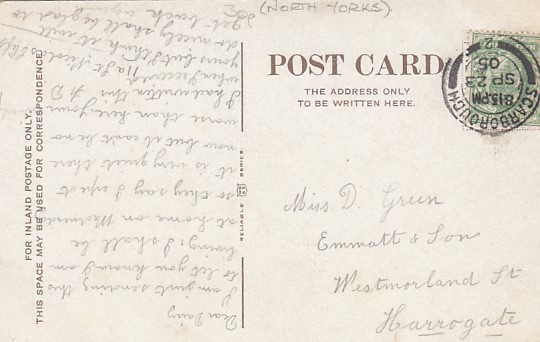 38p
(NORTH YORKS).
POST CARD
THE ADDRESS ONLY
TO BE WRITTEN HERE.
SCARBOROUGH
8.15PM
SP 25
05
FOR INLAND POSTAGE ONLY.
THIS SPACE MAY BE USED FOR CORRESPONDENCE
RELIABLE SERIES.
Dear Daisy
I am just sending this
to let you know I am
living, I shall be
at home on Wednesday
so they say I expect
it is very quiet there
now but it can't be no
worse than here your
I had written this
when I received
yours but I think it will
do nicely shall be glad to
get back again
Miss. D. Green
Emmatt & Son
Westmorland St
Harrogate